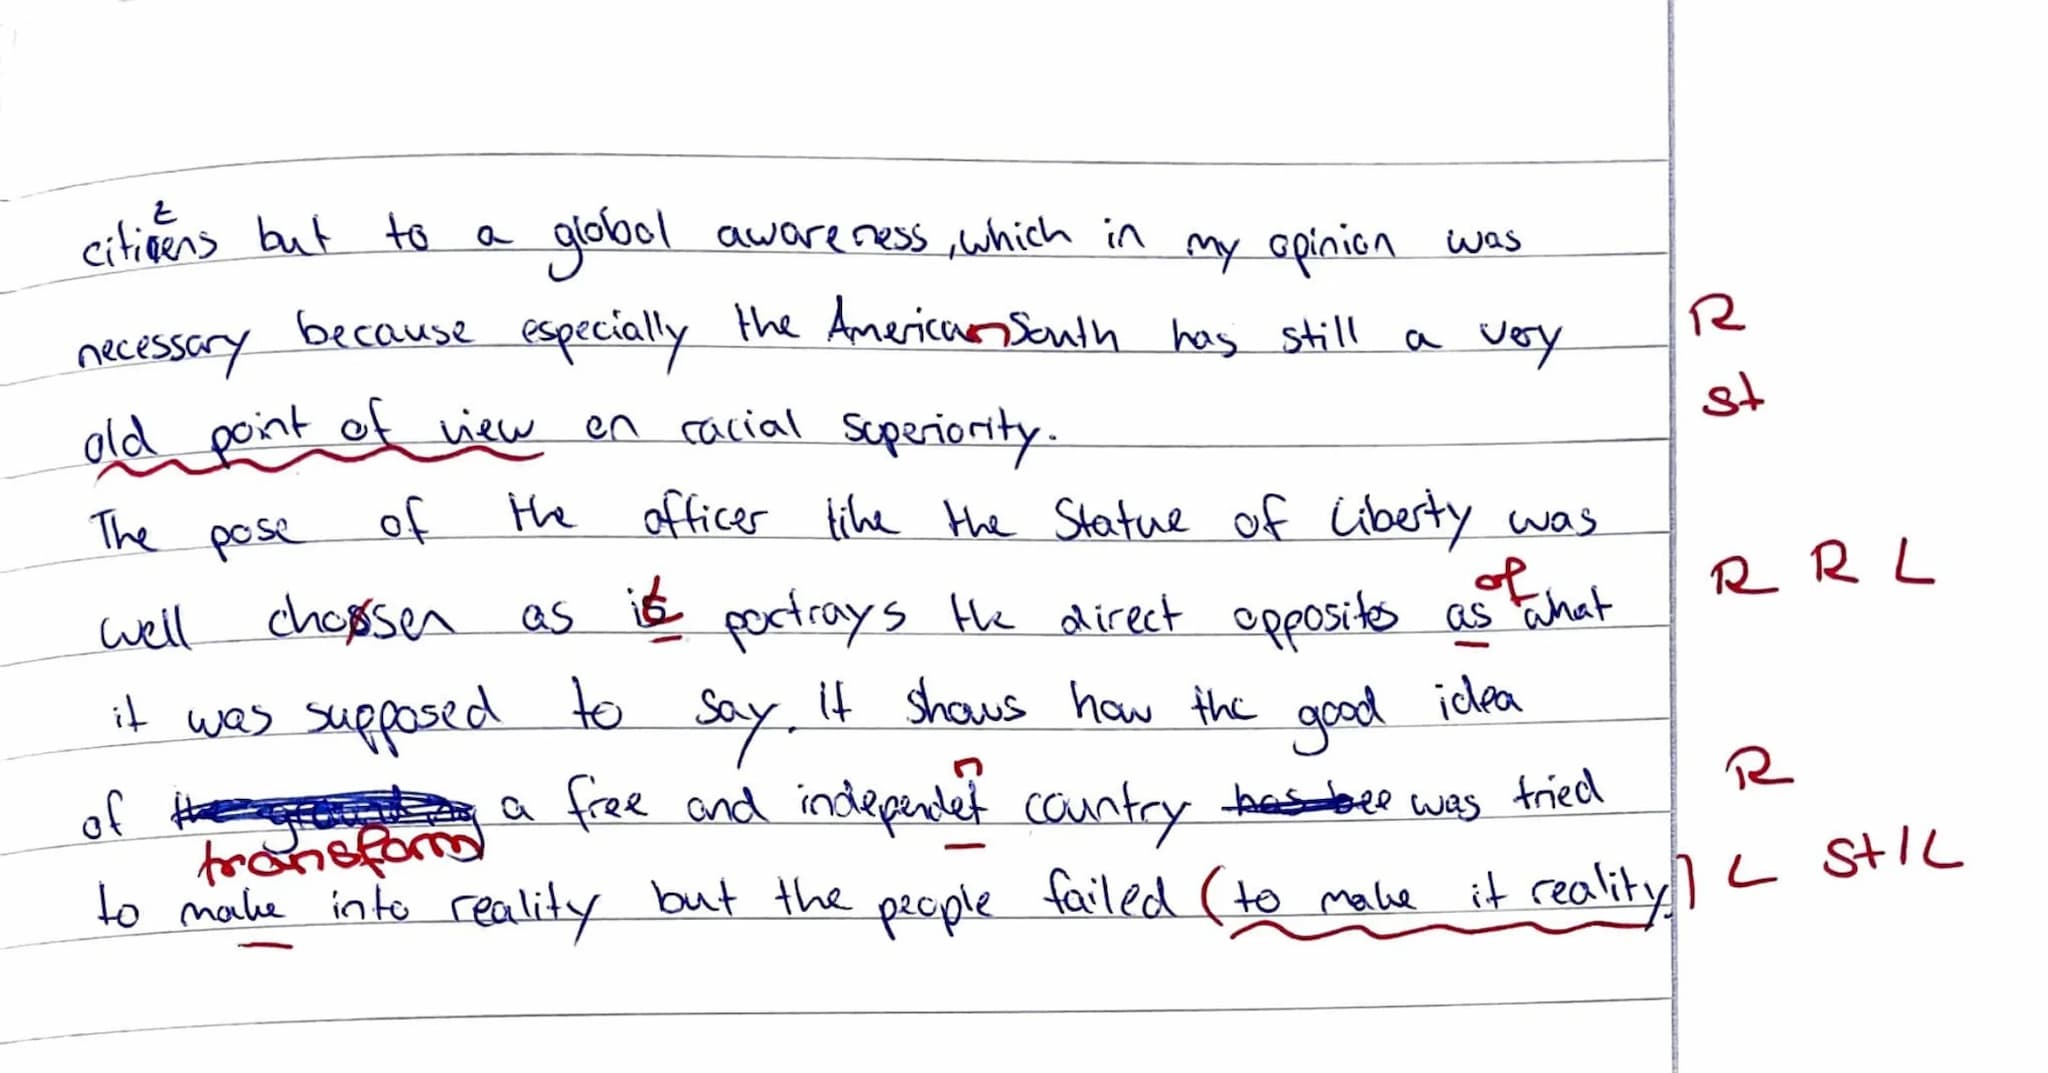 citizens but to a global awareness, which in my opinion was
necessary because especially the American South has still a very R
St
old point of view on racial superiority.
The pose of the officer like the Statue of Liberty was
of R R L
well chosen as it portrays the direct opposites as what
it was supposed to say. It shows how the good idea
n R
of a free and independet country has bee was tried
transform L St/L
to make into reality but the people failed (to make it reality.)